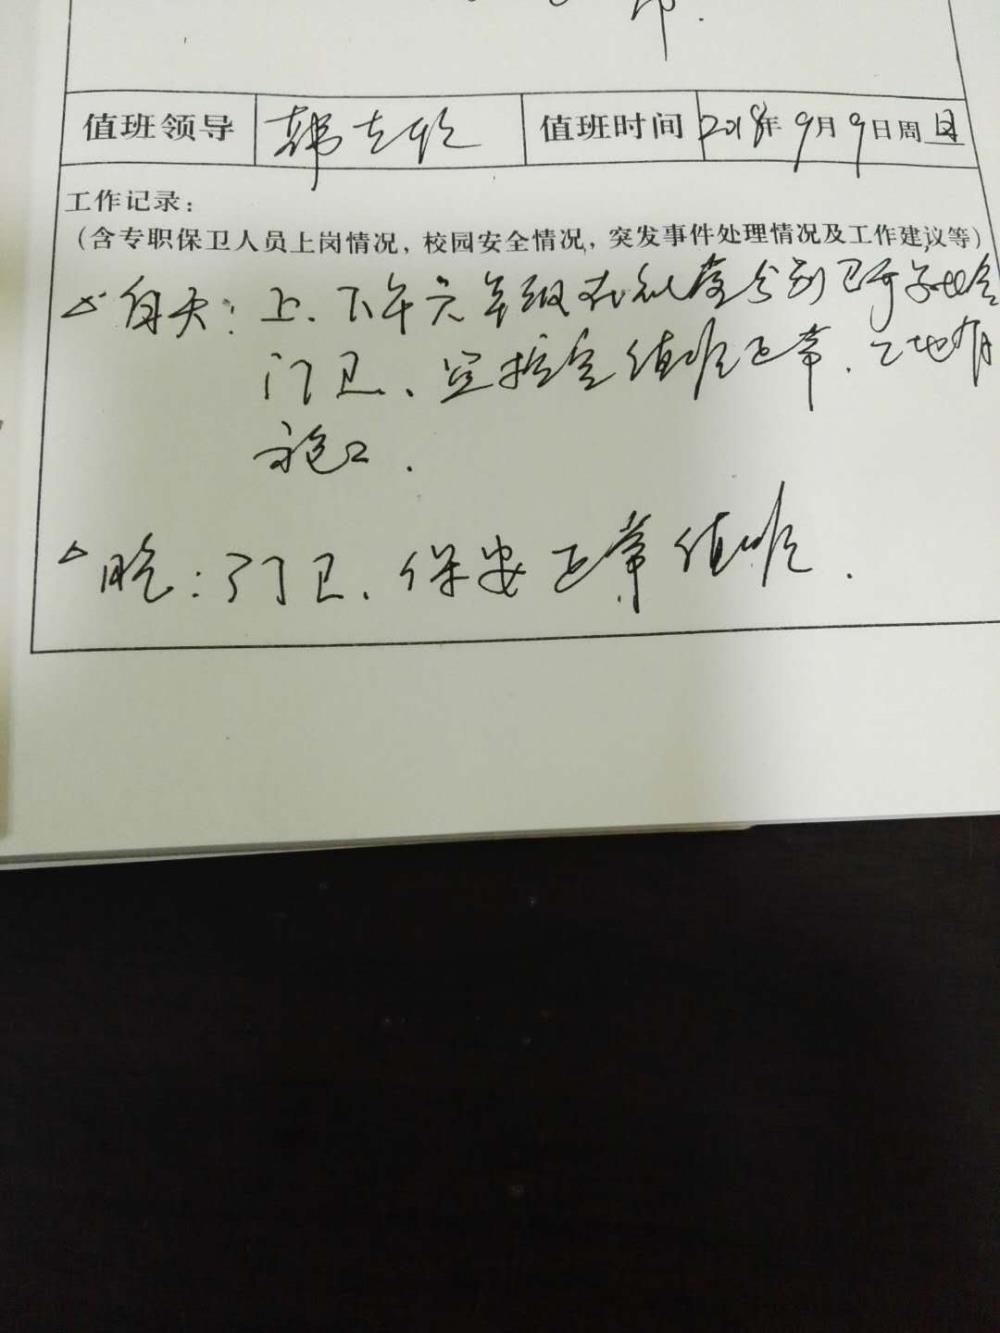 值班领导 韩 值班时间 2018年9月9日周日
工作记录：
（含专职保卫人员上岗情况，校园安全情况，突发事件处理情况及工作建议等）
△白天：上、下午六年级在礼堂分别召开家长会
门卫、监控室值班正常．工地有
施工．
△晚：门卫、保安正常值班．